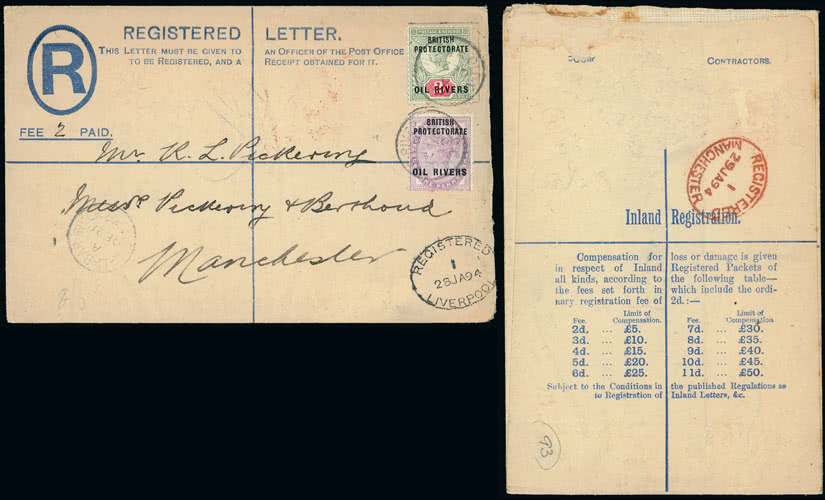 REGISTERED LETTER.
THIS LETTER MUST BE GIVEN TO AN OFFICER OF THE POST OFFICE
TO BE REGISTERED, AND A RECEIPT OBTAINED FOR IT.
R
FEE 2 PAID.
BRITISH
PROTECTORATE
OIL RIVERS
BRITISH
PROTECTORATE
OIL RIVERS
Mr. K. L. Pickering
Messrs Pickering & Berthoud
Manchester
REGISTERED
1
28JA94
LIVERPOOL
CONTRACTORS.
REGISTERED
1
29JA94
MANCHESTER
Inland Registration.
Compensation for loss or damage is given
in respect of Inland Registered Packets of
all kinds, according to the following table—
the fees set forth in which include the ordi-
nary registration fee of 2d.:—
Fee. Limit of Compensation. Fee. Limit of Compensation.
2d. ... £5. 7d. ... £30.
3d. ... £10. 8d. ... £35.
4d. ... £15. 9d. ... £40.
5d. ... £20. 10d. ... £45.
6d. ... £25. 11d. ... £50.
Subject to the Conditions in the published Regulations as
to Registration of Inland Letters, &c.
93